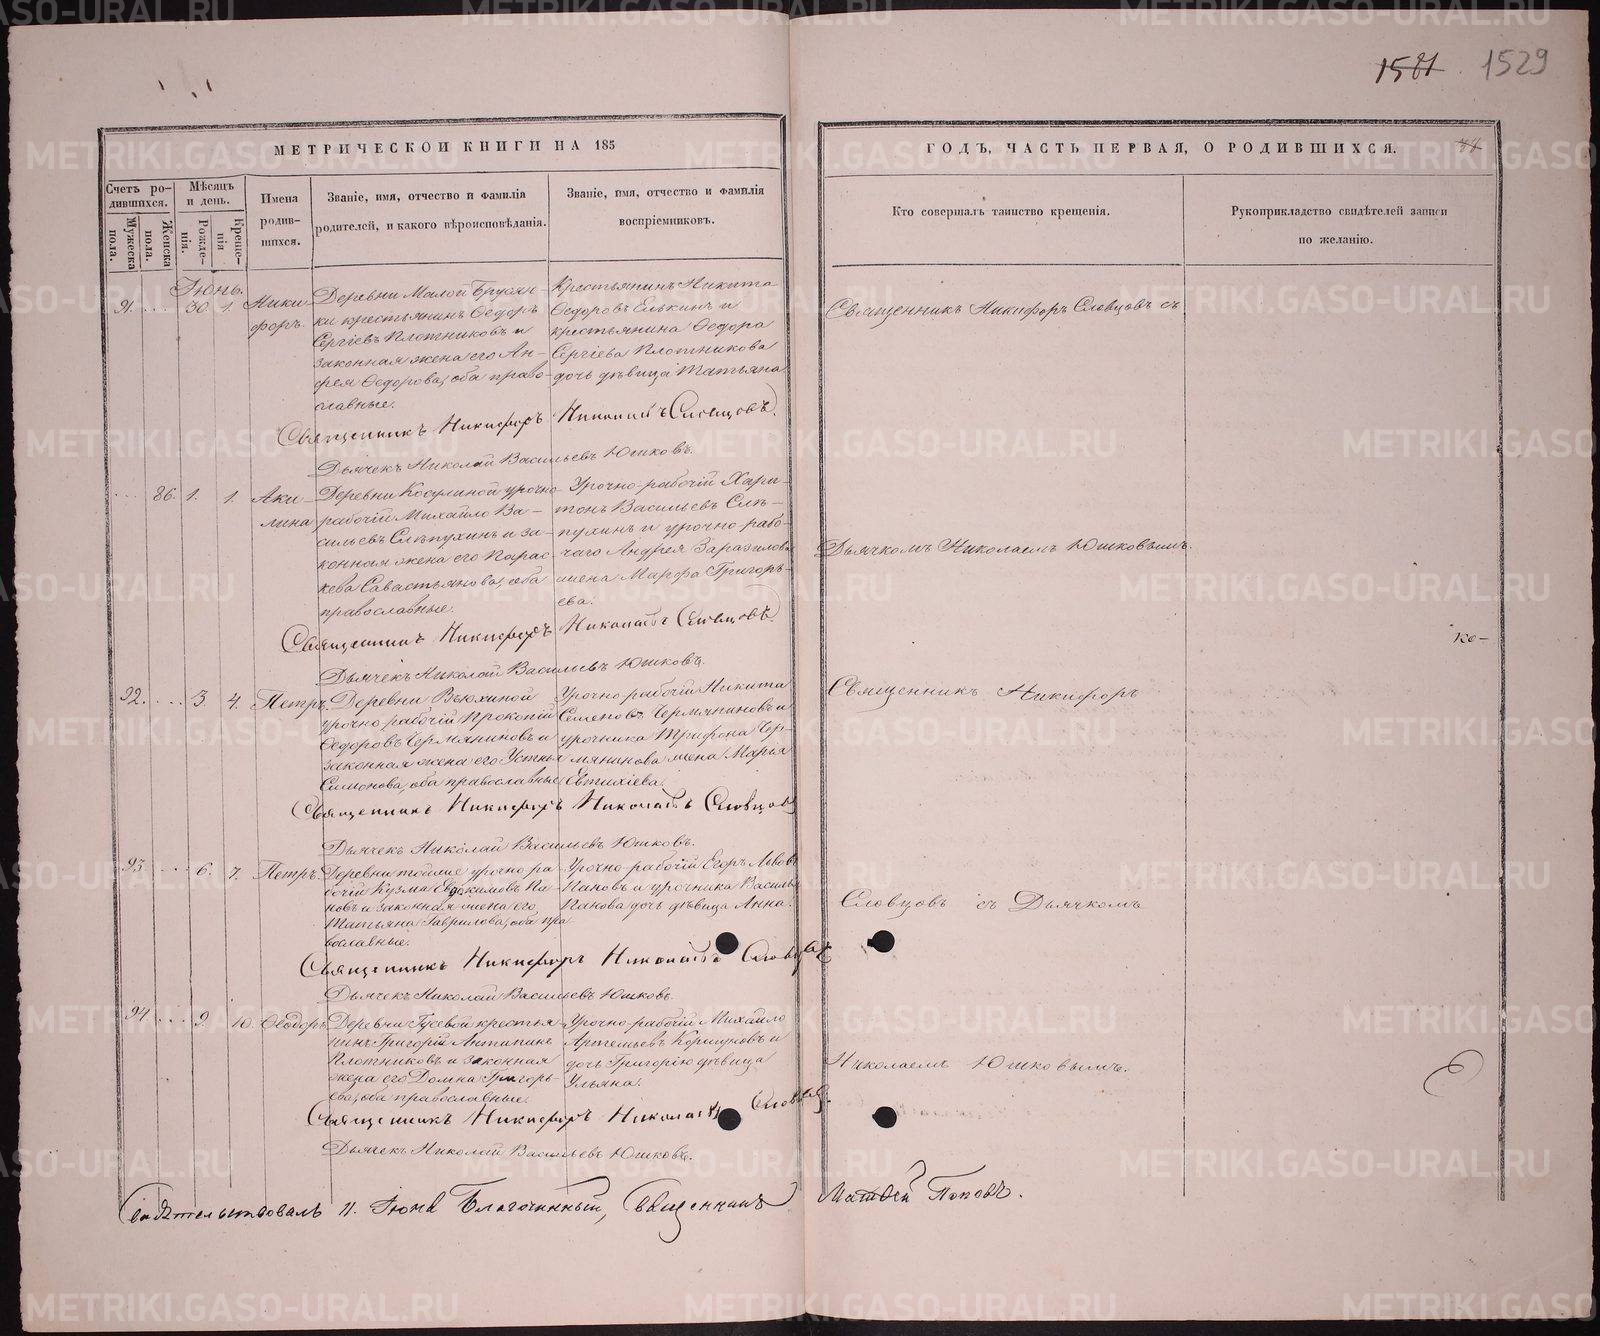 1581. 1529
МЕТРИЧЕСКОЙ КНИГИ НА 185
ГОДЪ, ЧАСТЬ ПЕРВАЯ, О РОДИВШИХСЯ.
Счетъ ро-
дившихся.
Мужеска пола.
Женска пола.
Мѣсяцъ
и день.
Рожде-
нія.
Креще-
нія
Имена
родив-
шихся.
Званіе, имя, отчество и фамилія
родителей, и какого вѣроисповѣданія.
Званіе, имя, отчество и фамилія
воспріемниковъ.
Кто совершалъ таинство крещенія.
Рукоприкладство свидѣтелей записи
по желанію.
Іюнь.
91. 30. 1. Ники-
форъ.
Деревни Малой Брусян-
ки крестьянинъ Ѳедоръ
Сергіевъ Плотниковъ и
законная жена его Ан-
фея Ѳедорова, оба право-
славные.
Крестьянинъ Никита
Ѳедоровъ Елькинъ и
крестьянина Ѳедора
Сергіева Плотникова
дочь дѣвица Татьяна
Священникъ Никифоръ Словцовъ съ
Священникъ Никифоръ Николаевъ Словцовъ.
Дьячекъ Николай Васильевъ Юшковъ.
86. 1. 1. Аки-
лина
Деревни Косулиной урочно
рабочій Михайло Ва-
сильевъ Слѣпухинъ и за-
конная жена его Парас
кева Савастьянова, оба
православные.
Урочно-рабочій Хари-
тонъ Васильевъ Слѣ-
пухинъ и урочно-рабо-
чаго Андрея Заразилова
жена Марфа Григорь-
ева.
Дьячкомъ Николаемъ Юшковымъ.
Священникъ Никифоръ Николаевъ Словцовъ
Дьячекъ Николай Васильевъ Юшковъ.
92. 3. 4. Петръ.
Деревни Вьюхиной
урочно рабочій Прокопій
Ѳедоровъ Чермяниновъ и
законная жена его Устинья
Симонова, оба православные
Урочно-рабочій Никита
Семеновъ Чермяниновъ и
урочника Трифона Чер-
мянинова жена Марья
Евтихіева.
Священникъ Никифоръ
Священникъ Никифоръ Николаевъ Словцовъ
Дьячекъ Николай Васильевъ Юшковъ.
93. 6. 7. Петръ.
Деревни тойже урочно ра-
бочій Кузма Евдокимовъ Па-
новъ и законная жена его
Татьяна Гаврилова, оба пра
вославные.
Урочно-рабочій Егоръ Львовъ
Пановъ и урочника Василья
Панова дочь дѣвица Анна.
Словцовъ съ Дьячкомъ
Священникъ Никифоръ Николаевъ Словцовъ
Дьячекъ Николай Васильевъ Юшковъ.
94. 9. 10. Ѳеодоръ.
Деревни Гусевой крестья-
нинъ Григорій Антипинъ
Плотниковъ и законная
жена его Домна Григорь-
ева, оба православные.
Урочно-рабочій Михайло
Артемьевъ Коршуновъ и
дочь Григорію дѣвица
Ульяна.
Николаемъ Юшковымъ.
Священникъ Никифоръ Николаевъ Словцовъ.
Дьячекъ Николай Васильевъ Юшковъ.
Свидѣтельствовалъ 11. Іюня Благочинный, Священникъ Матвей Поповъ.